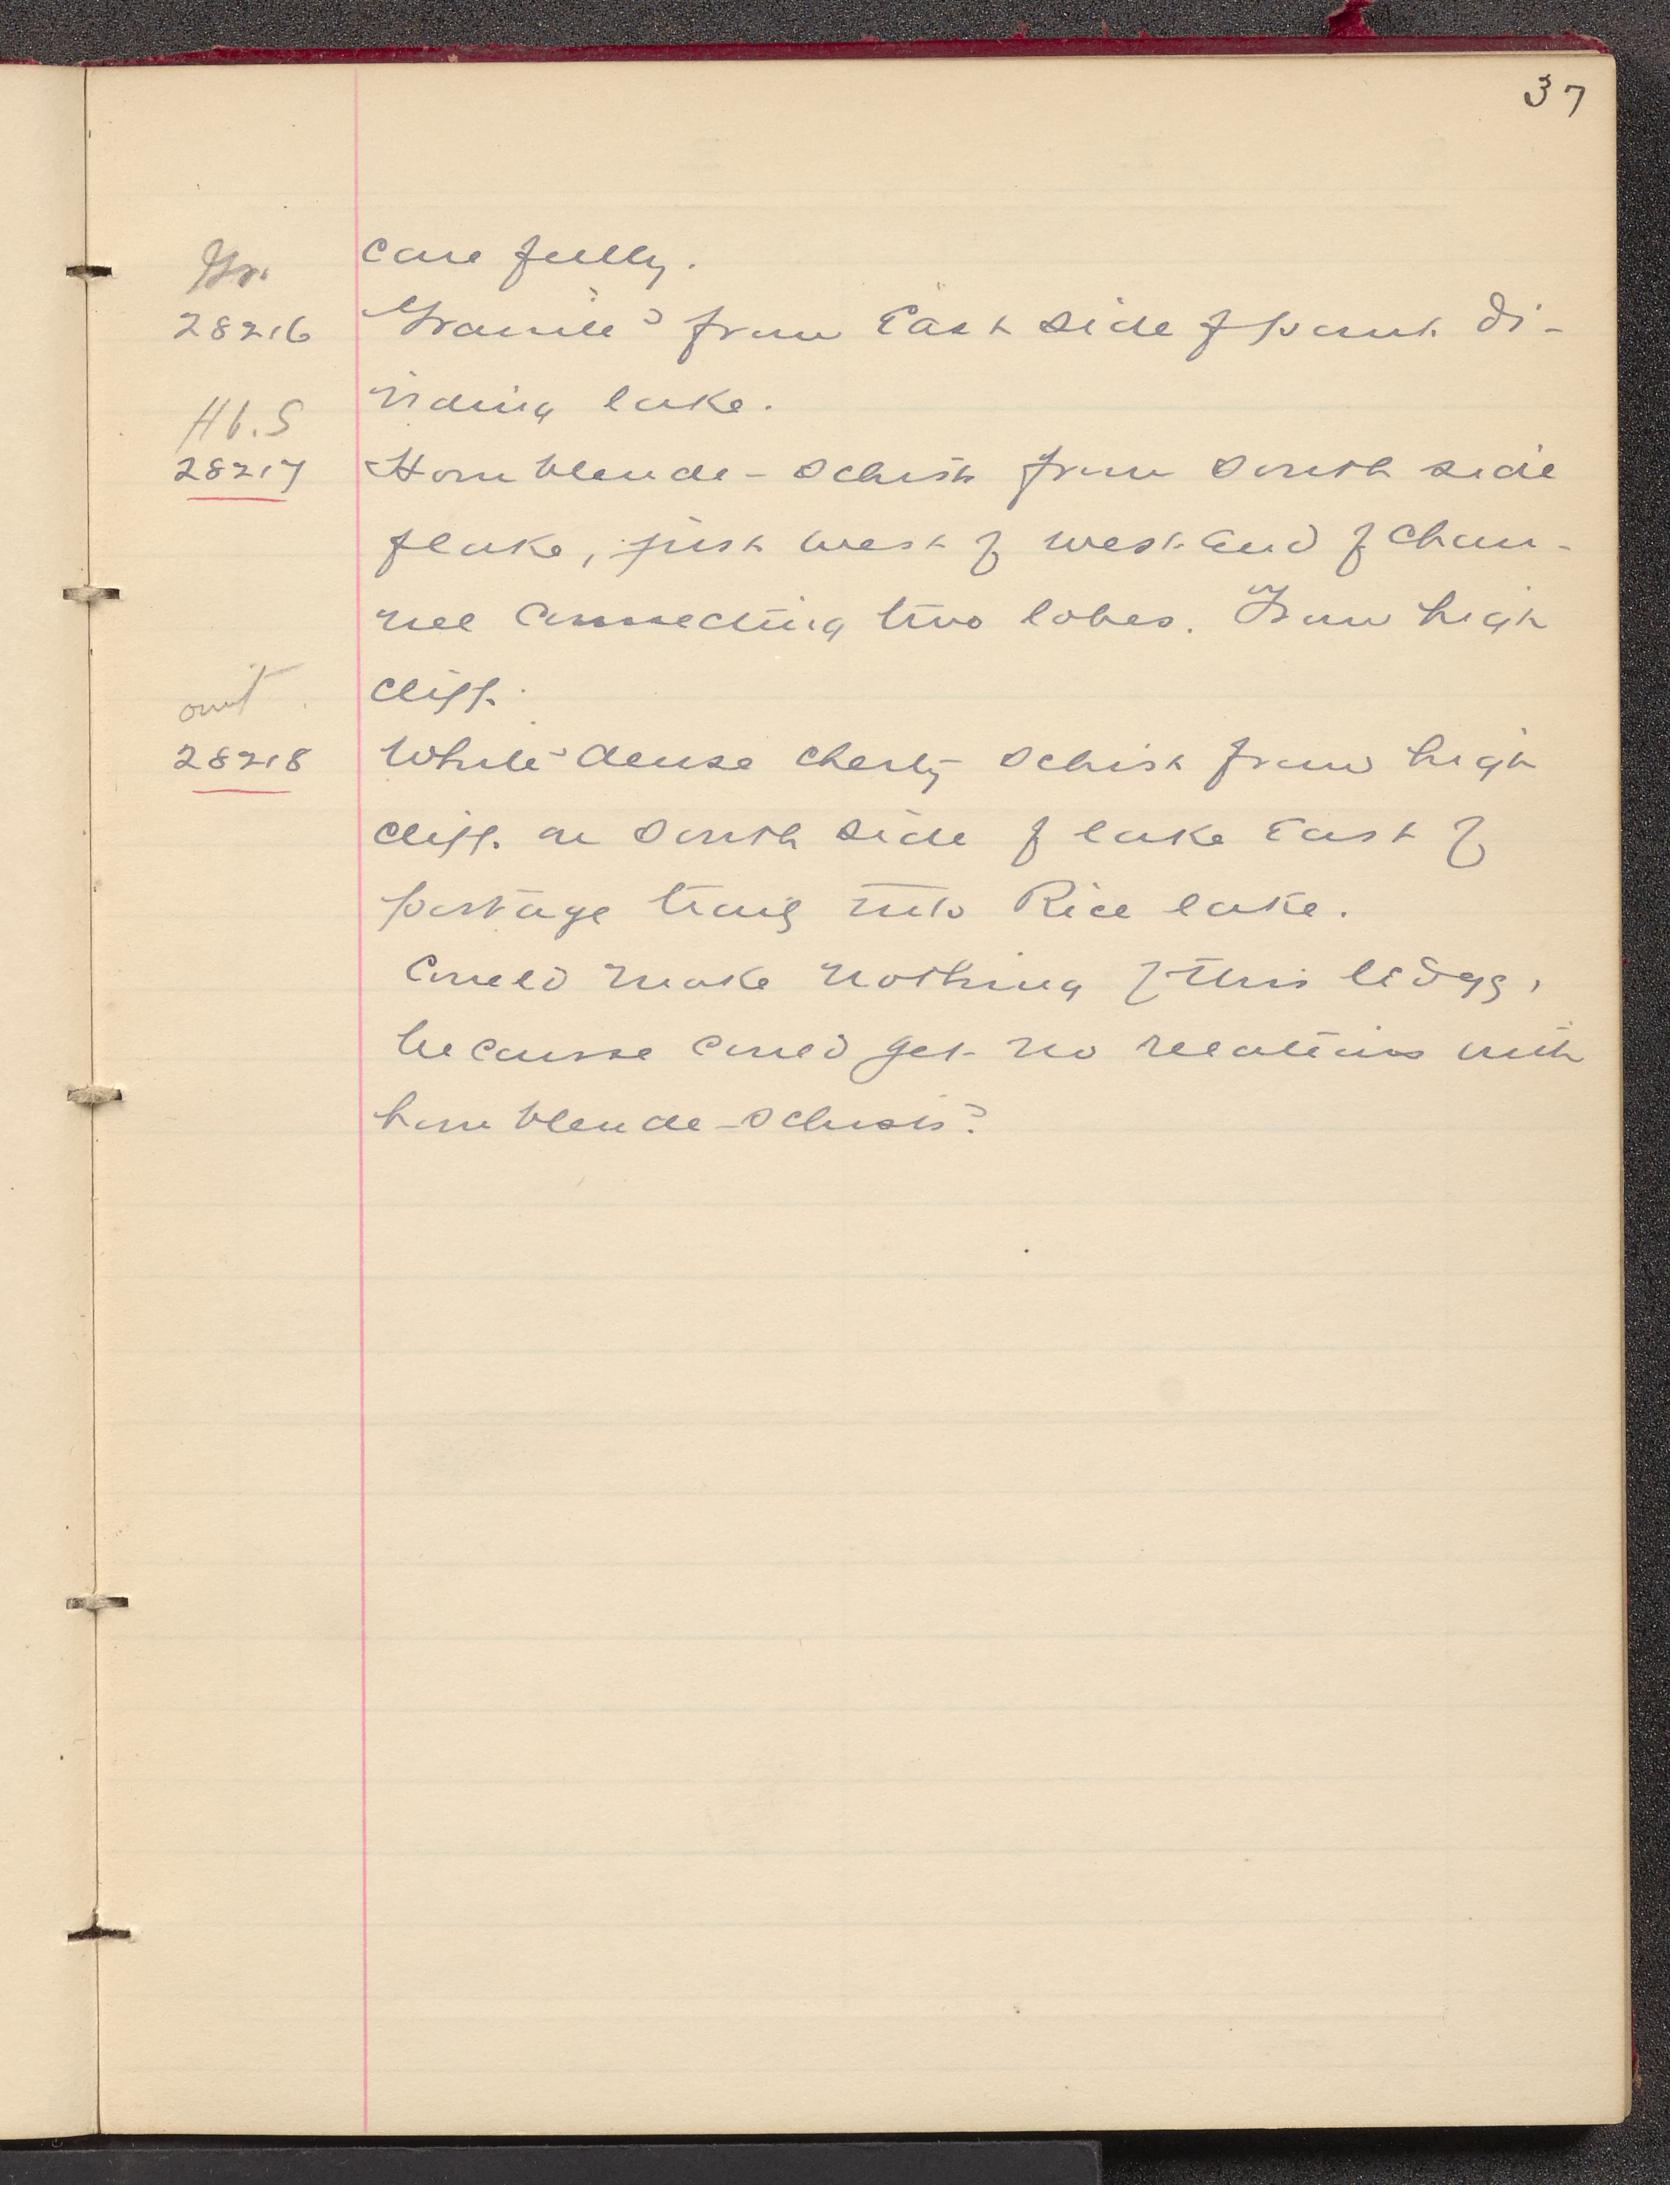 37
carefully.
Gr.
28216 Granite? from East side of point di-
viding lake.
Hb.S
28217 Hornblende-schist from south side
of lake, just west of west end of chan-
nel connecting two lobes. From high
cliff.
omit.
28218 White dense cherty schist from high
cliff on south side of lake East of
portage trail into Rice lake.
Could make nothing of this ledge,
because could get no relations with
hornblende-schists?